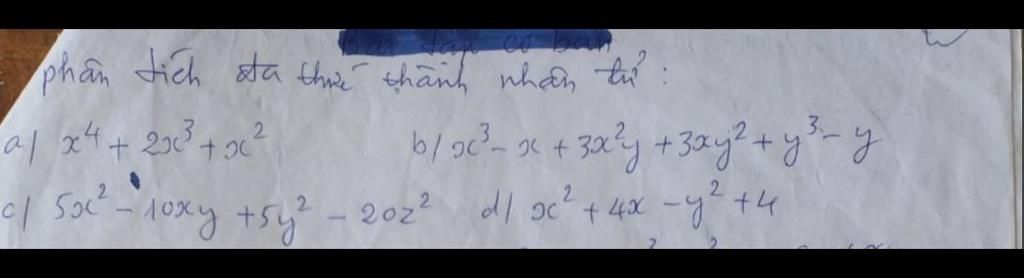 Bài tập cơ bản
phân tích đa thức thành nhân tử :
a/ x⁴ + 2x³ + x² b/ x³ - x + 3x²y + 3xy² + y³ - y
c/ 5x² - 10xy + 5y² - 20z² d/ x² + 4x - y² + 4